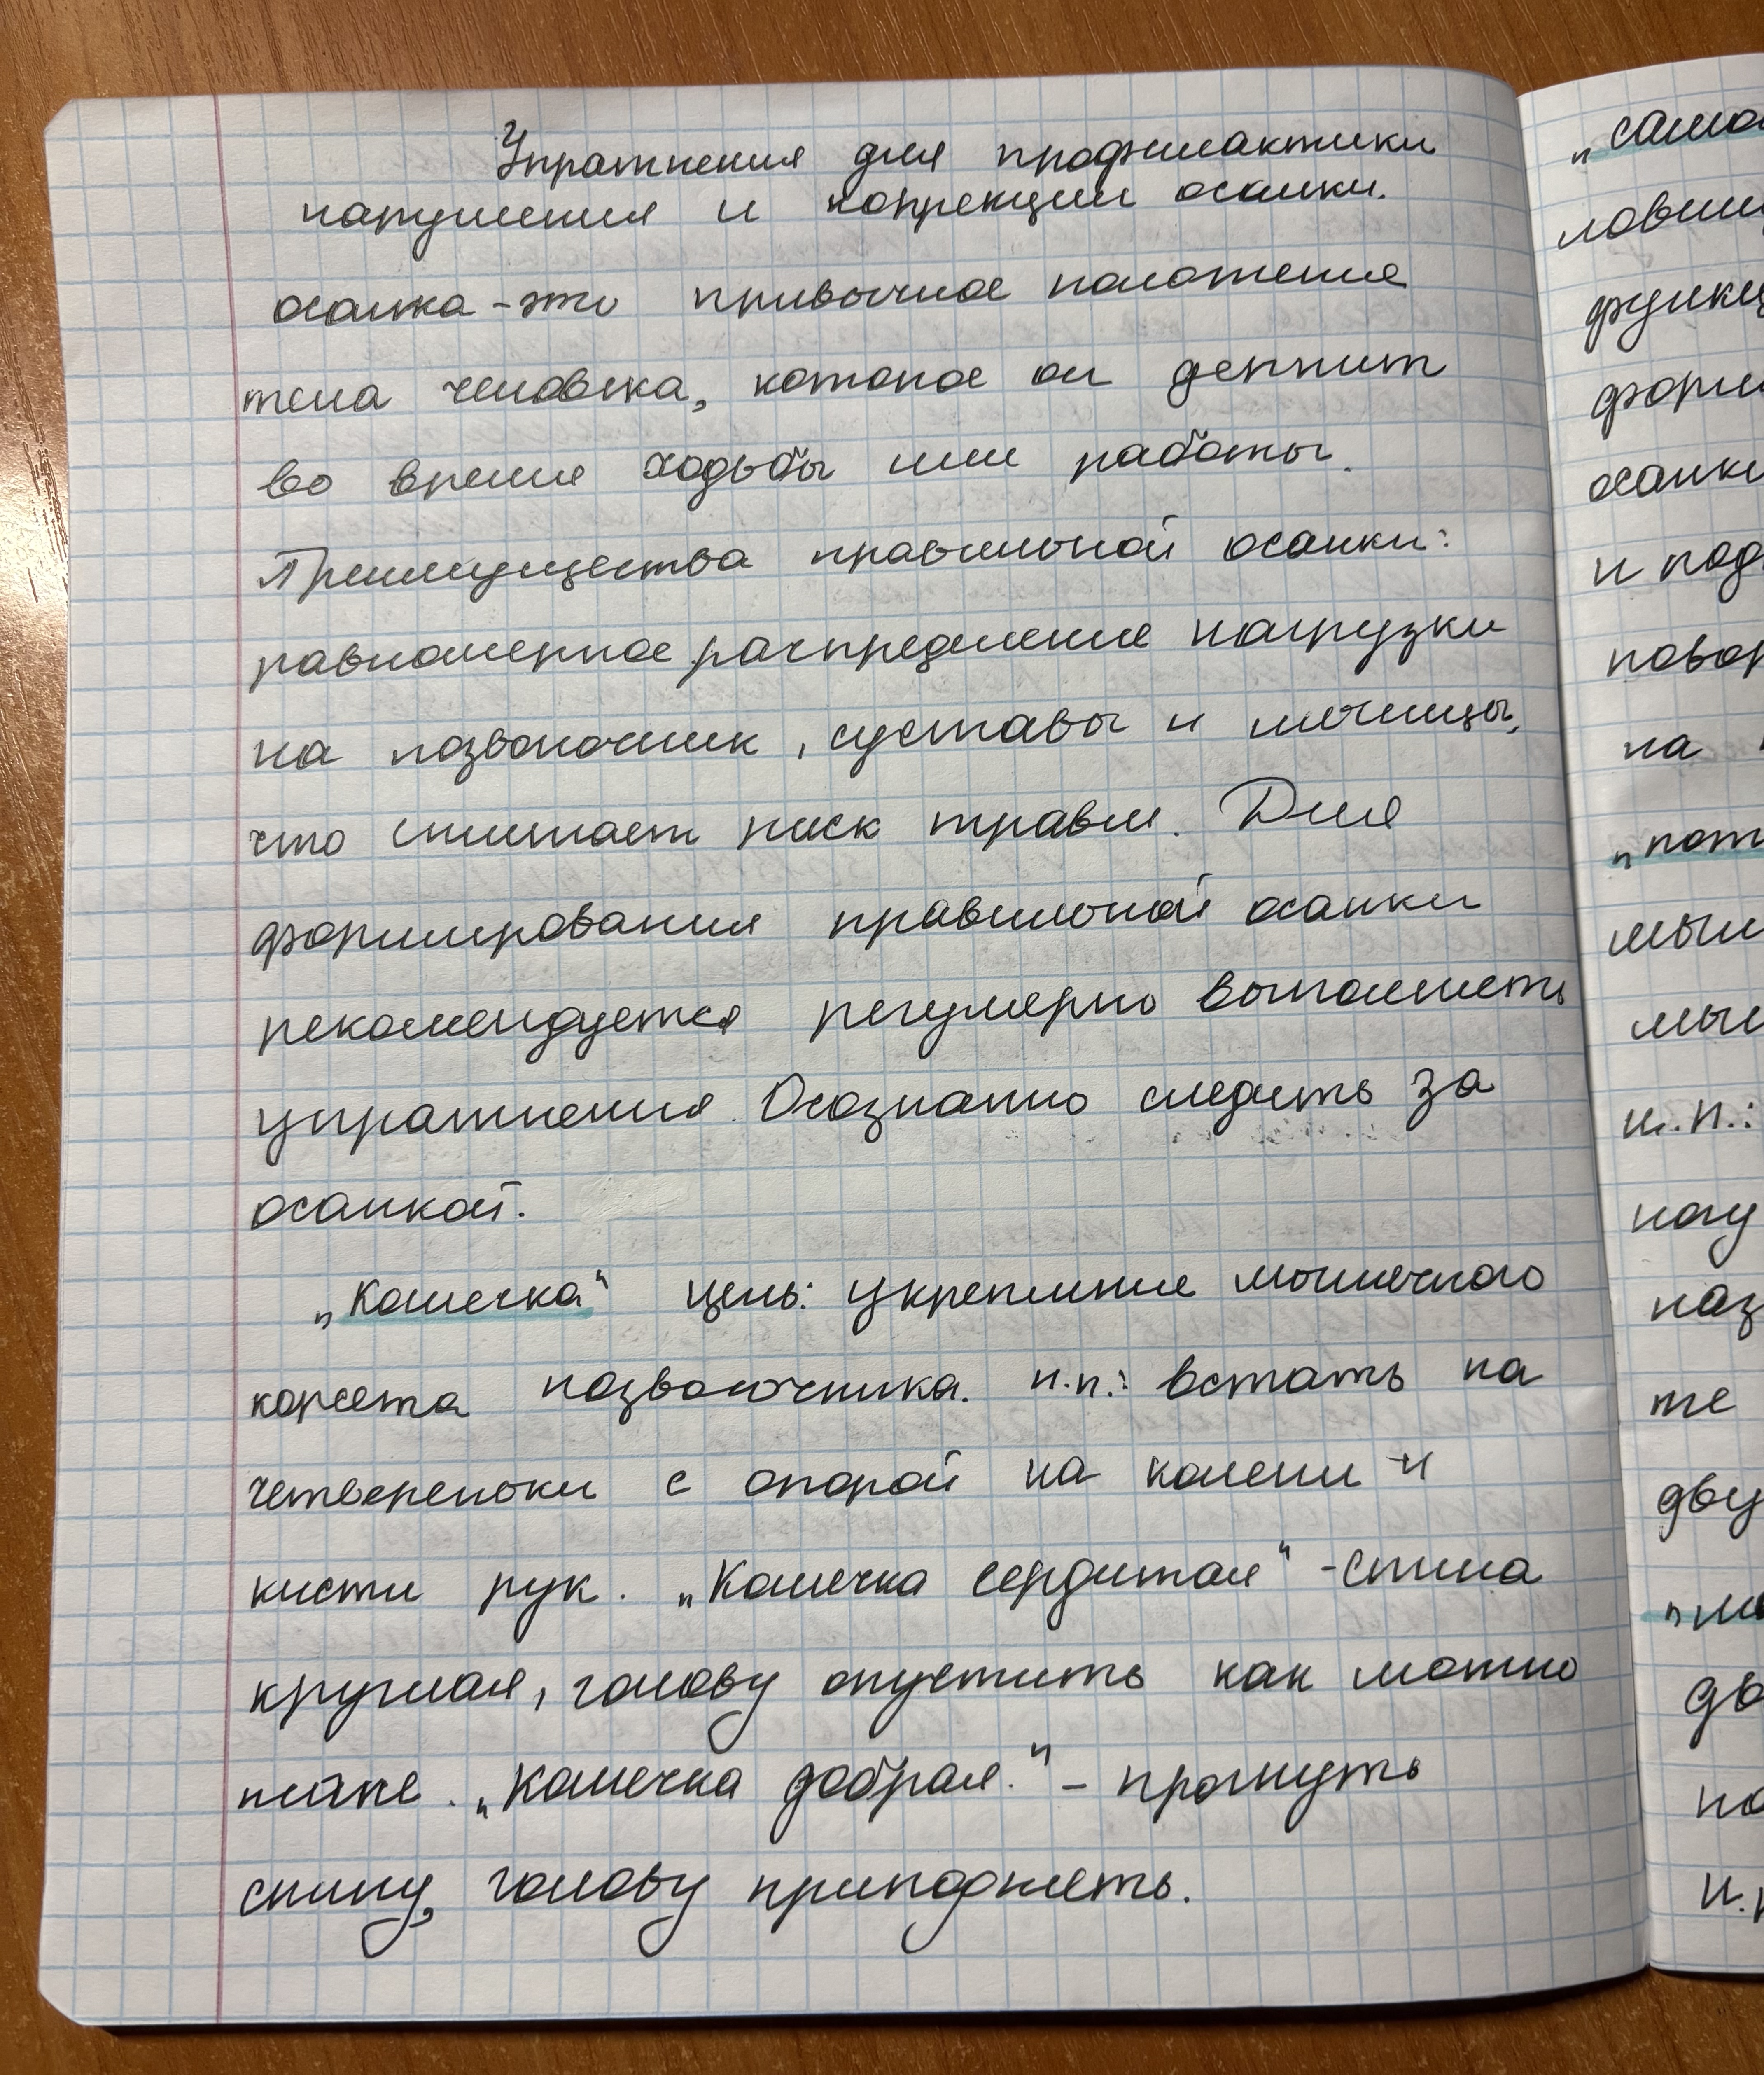 Упражнения для профилактики
нарушения и коррекции осанки.
осанка - это привычное положение
тела человека, которое он держит
во время ходьбы или работы.
Преимущества правильной осанки:
равномерное распределение нагрузки
на позвоночник, суставы и мышцы,
что снижает риск травм. Для
формирования правильной осанки
рекомендуется регулярно выполнять
упражнения. Осознанно следить за
осанкой.
„Кошечка“ цель: укрепление мышечного
корсета позвоночника. и.п.: встать на
четвереньки с опорой на колени и
кисти рук. „Кошечка сердитая“ - спина
круглая, голову опустить как можно
ниже. „Кошечка добрая.“ - прогнуть
спину, голову приподнять.
осанки
на
„
мыш
и.п.:
же